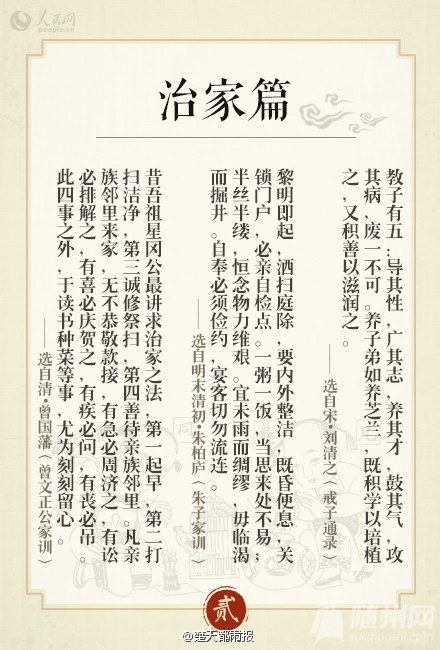 人民网
people.cn
治家篇
教子有五:导其性，广其志，养其才，鼓其气，攻
其病，废一不可。养子弟如养芝兰，既积学以培植
之，又积善以滋润之。
——选自宋·刘清之（戒子通录）
黎明即起，洒扫庭除，要内外整洁，既昏便息，关
锁门户，必亲自检点。一粥一饭，当思来处不易；
半丝半缕，恒念物力维艰。宜未雨而绸缪，毋临渴
而掘井。自奉必须俭约，宴客切勿流连。
——选自明末清初·朱柏庐（朱子家训）
昔吾祖星冈公最讲求治家之法，第一起早，第二打
扫洁净，第三诚修祭扫，第四善待亲族邻里。凡亲
族邻里来家，无不恭敬款接，有急必周济之，有讼
必排解之，有喜必庆贺之，有疾必问，有丧必吊。
此四事之外，于读书种菜等事，尤为刻刻留心。
——选自清·曾国藩（曾文正公家训）
贰
@楚天都市报
随州网